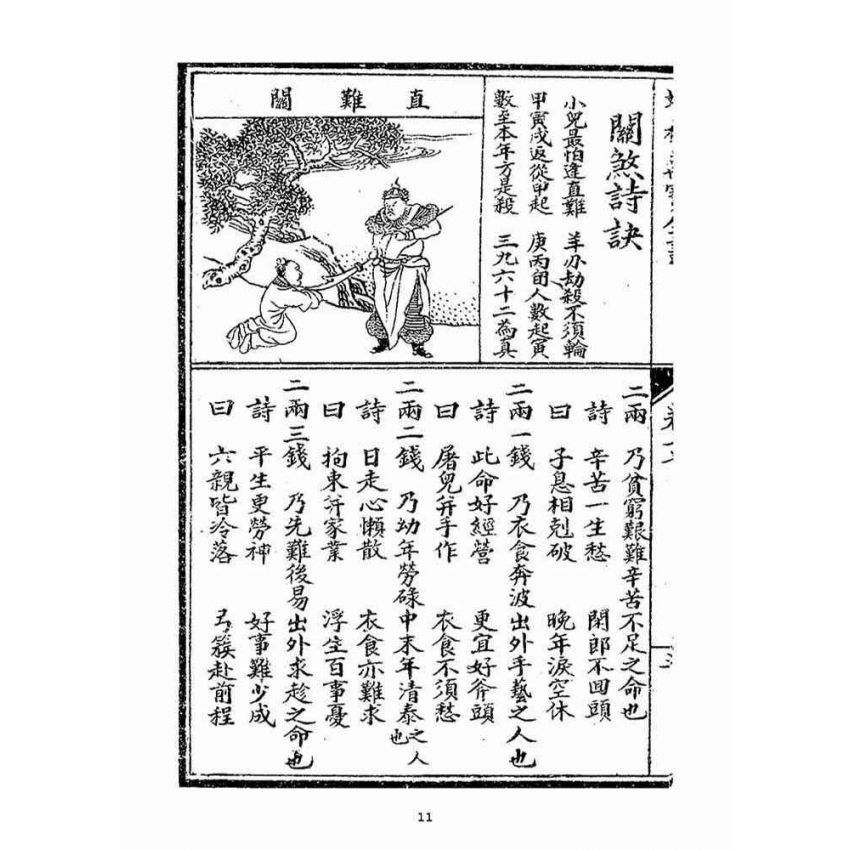 關煞詩訣
小兒最怕逢直難 羊刃劫殺不須輪
甲寅戌返從申起 庚丙 人數起寅
數至本年方是殺 三九六十二為真
直難關
二兩 乃貧窮艱難辛苦不足之命也
詩 辛苦一生愁 閑郎不回頭
曰 子息相剋破 晚年淚空休
二兩一錢 乃衣食奔波出外手藝之人也
詩 此命好經營 更宜好斧頭
曰 屠兒并手作 衣食不須愁
二兩二錢 乃幼年勞碌中末年清泰之人也
詩 日走心懶散 衣食亦難求
曰 拘束并家業 浮生百事憂
二兩三錢 乃先難後易出外求趁之命也
詩 平生更勞神 好事難少成
曰 六親皆冷落 簇赴前程
11